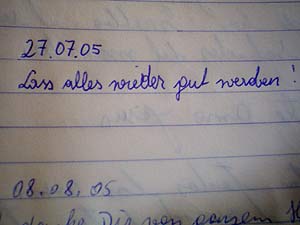 27.07.05
Lass alles wieder gut werden!
08.08.05
Dir von ganzem